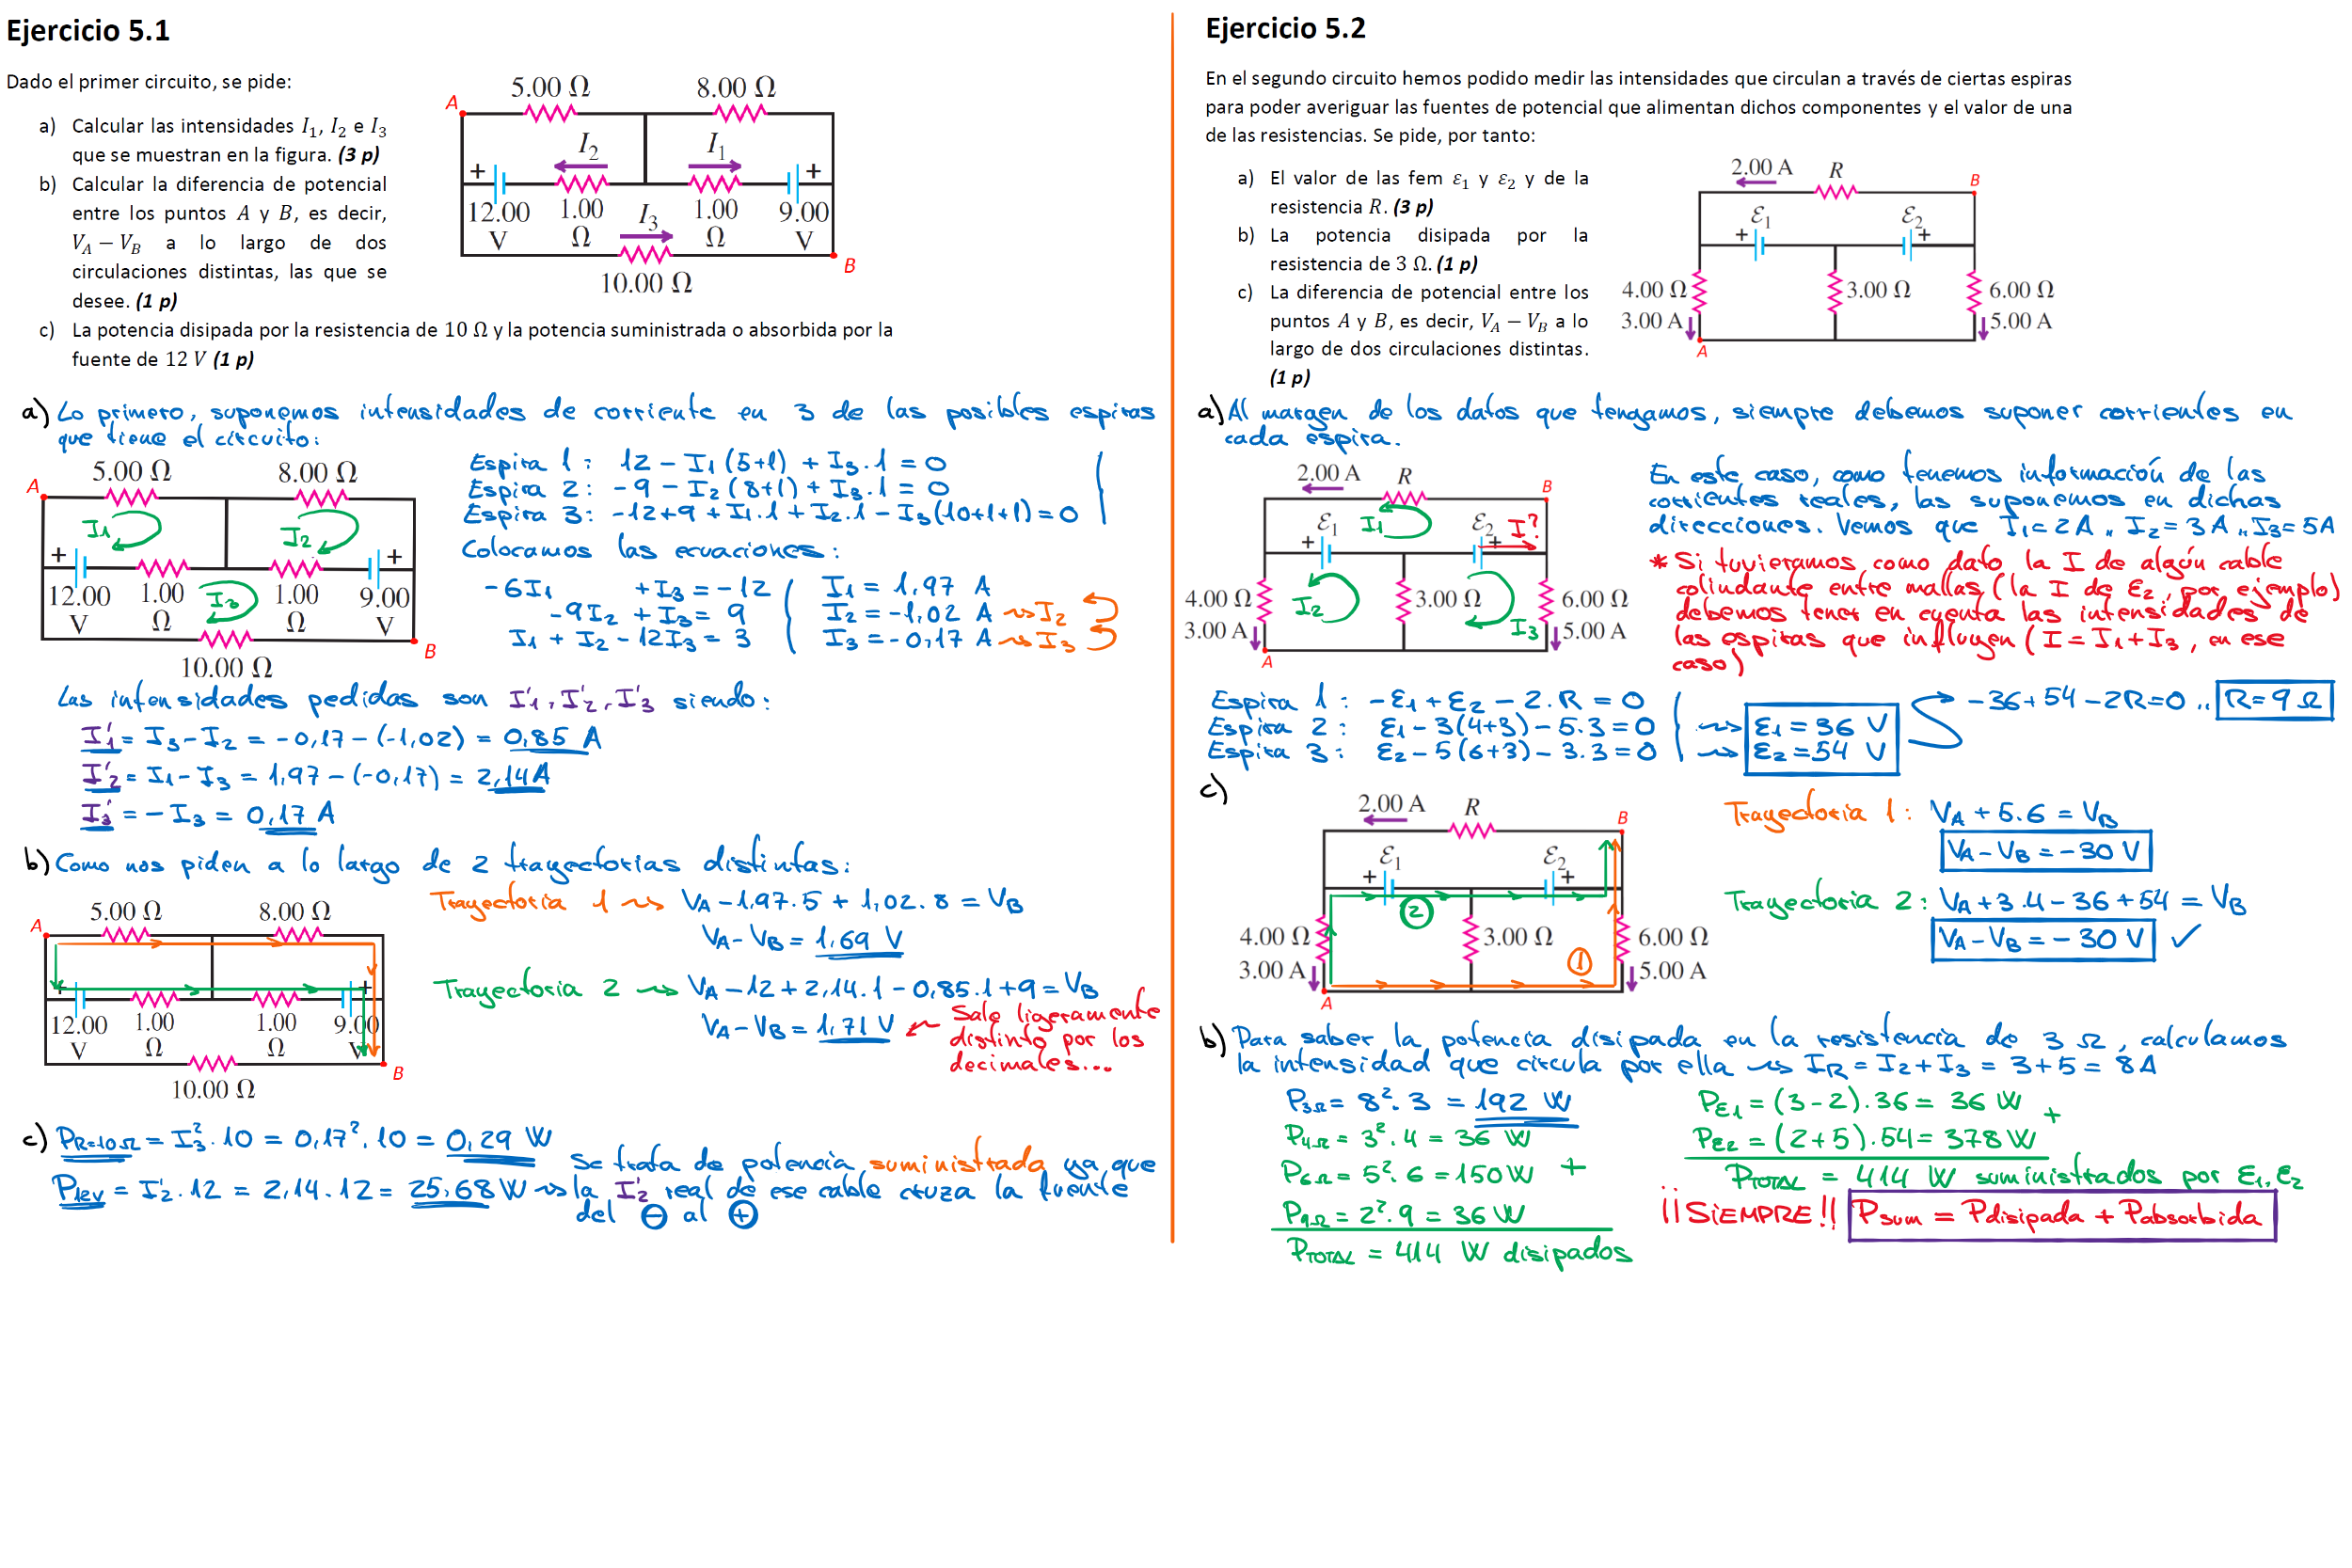 Ejercicio 5.1
Dado el primer circuito, se pide:
a) Calcular las intensidades I₁, I₂ e I₃
que se muestran en la figura. (3 p)
b) Calcular la diferencia de potencial
entre los puntos A y B, es decir,
V_A − V_B a lo largo de dos
circulaciones distintas, las que se
desee. (1 p)
c) La potencia disipada por la resistencia de 10 Ω y la potencia suministrada o absorbida por la
fuente de 12 V (1 p)
A
5.00 Ω 8.00 Ω
I₂ I₁
+ +
12.00 V 1.00 Ω I₃ 1.00 Ω 9.00 V
B
10.00 Ω
a) Lo primero, suponemos intensidades de corriente en 3 de las posibles espiras
que tiene el circuito:
5.00 Ω 8.00 Ω
A
I₁ I₂
+ +
12.00 V 1.00 Ω I₃ 1.00 Ω 9.00 V
B
10.00 Ω
Espira 1: 12 - I₁(5+1) + I₃·1 = 0
Espira 2: -9 - I₂(8+1) + I₃·1 = 0
Espira 3: -12+9 + I₁·1 + I₂·1 - I₃(10+1+1) = 0
Colocamos las ecuaciones:
-6I₁ +I₃ = -12 I₁ = 1,97 A
-9I₂ + I₃ = 9 I₂ = -1,02 A ⇝ I₂
I₁ + I₂ - 12I₃ = 3 I₃ = -0,17 A ⇝ I₃
Las intensidades pedidas son I'₁, I'₂, I'₃ siendo:
I'₁ = I₃ - I₂ = -0,17 - (-1,02) = 0,85 A
I'₂ = I₁ - I₃ = 1,97 - (-0,17) = 2,14 A
I'₃ = - I₃ = 0,17 A
b) Como nos piden a lo largo de 2 trayectorias distintas:
5.00 Ω 8.00 Ω
A
+ +
12.00 V 1.00 Ω 1.00 Ω 9.00 V
B
10.00 Ω
Trayectoria 1 ⇝ V_A - 1,97·5 + 1,02·8 = V_B
V_A - V_B = 1,69 V
Trayectoria 2 ⇝ V_A - 12 + 2,14·1 - 0,85·1 + 9 = V_B
V_A - V_B = 1,71 V ← Sale ligeramente
distinto por los
decimales...
c) P_R=10Ω = I₃²·10 = 0,17²·10 = 0,29 W
P_12V = I'₂·12 = 2,14·12 = 25,68 W ⇝ Se trata de potencia suministrada ya que
la I'₂ real de ese cable cruza la fuente
del ⊖ al ⊕
Ejercicio 5.2
En el segundo circuito hemos podido medir las intensidades que circulan a través de ciertas espiras
para poder averiguar las fuentes de potencial que alimentan dichos componentes y el valor de una
de las resistencias. Se pide, por tanto:
a) El valor de las fem ε₁ y ε₂ y de la
resistencia R. (3 p)
b) La potencia disipada por la
resistencia de 3 Ω. (1 p)
c) La diferencia de potencial entre los
puntos A y B, es decir, V_A − V_B a lo
largo de dos circulaciones distintas.
(1 p)
2.00 A R
B
ε₁ ε₂
+ +
4.00 Ω 3.00 Ω 6.00 Ω
3.00 A 5.00 A
A
a) Al margen de los datos que tengamos, siempre debemos suponer corrientes en
cada espira.
2.00 A R
B
ε₁ I₁ ε₂ I?
+ +
4.00 Ω I₂ 3.00 Ω 6.00 Ω
3.00 A I₃ 5.00 A
A
En este caso, como tenemos información de las
corrientes reales, las suponemos en dichas
direcciones. Vemos que I₁=2A ,, I₂=3A ,, I₃=5A
* Si tuvieramos como dato la I de algún cable
colindante entre mallas (la I de ε₂, por ejemplo)
debemos tener en cuenta las intensidades de
las espiras que influyen (I = I₁+I₃, en ese
caso)
Espira 1: -ε₁ + ε₂ - 2·R = 0
Espira 2: ε₁ - 3(4+3) - 5·3 = 0 ⇝ ε₁ = 36 V
Espira 3: ε₂ - 5(6+3) - 3·3 = 0 ⇝ ε₂ = 54 V
-36+54-2R=0 ,, R=9 Ω
c)
2.00 A R
B
ε₁ ε₂
+ +
2
4.00 Ω 3.00 Ω 6.00 Ω
3.00 A 1 5.00 A
A
Trayectoria 1: V_A + 5·6 = V_B
V_A - V_B = -30 V
Trayectoria 2: V_A + 3·4 - 36 + 54 = V_B
V_A - V_B = -30 V ✓
b) Para saber la potencia disipada en la resistencia de 3 Ω, calculamos
la intensidad que circula por ella ⇝ I_R = I₂+I₃ = 3+5 = 8A
P_3Ω = 8²·3 = 192 W
P_4Ω = 3²·4 = 36 W
P_6Ω = 5²·6 = 150 W +
P_9Ω = 2²·9 = 36 W
P_TOTAL = 414 W disipados
P_ε₁ = (3-2)·36 = 36 W +
P_ε₂ = (2+5)·54 = 378 W
P_TOTAL = 414 W suministrados por ε₁, ε₂
¡¡SIEMPRE!! P_sum = P_disipada + P_absorbida